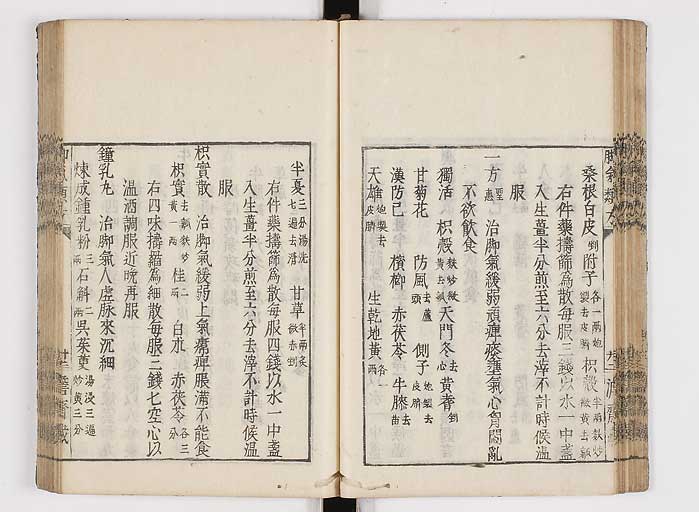 桑根白皮剉附子各一兩炮製去皮臍枳殼半兩麩炒微黃去瓤
右件藥擣篩為散每服三錢以水一中盞
入生薑半分煎至六分去滓不計時候溫
服
一方聖惠治脚氣緩弱頑痺痰壅氣心胷悶亂
不欲飲食
獨活枳殼麩炒微黃去瓤天門冬去心黃耆剉
甘菊花防風去蘆頭側子炮製去皮臍
漢防己檳榔赤茯苓牛膝去苗
天雄炮製去皮臍生乾地黃各一兩
半夏二分湯洗七遍去滑甘草半兩炙微赤剉
右件藥擣篩為散每服四錢以水一中盞
入生薑半分煎至六分去滓不計時候溫
服
枳實散治脚氣緩弱上氣痹脹滿不能食
枳實去瓤麩炒黃一兩桂二兩白朮赤茯苓各三分
右四味擣羅為細散每服三錢七空心以
溫酒調服近晚再服
鐘乳丸治脚氣人虛脉來沉細
煉成鍾乳粉三兩石斛二兩吳茱萸湯浸三遍炒黃三分